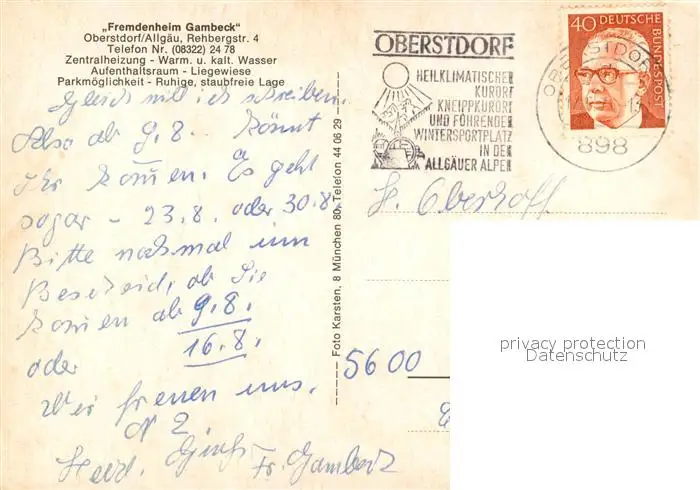 „Fremdenheim Gambeck"
Oberstdorf/Allgäu, Rehbergstr. 4
Telefon Nr. (08322) 24 78
Zentralheizung - Warm. u. kalt. Wasser
Aufenthaltsraum - Liegewiese
Parkmöglichkeit - Ruhige, staubfreie Lage
Gleich will ich schreiben.
Also ab 9.8. könnt
Ihr kommen. Es geht
sogar - 23.8. oder 30.8.
Bitte nochmal um
Bescheid, ob Sie
kommen ab 9.8.
oder 16.8.
Wir freuen uns.
Herzl. Gruß Fr. Gambeck
Foto Karsten, 8 München 80, Telefon 44 06 29
OBERSTDORF
HEILKLIMATISCHER
KURORT
KNEIPPKURORT
UND FÜHRENDER
WINTERSPORTPLATZ
IN DEN
ALLGÄUER ALPEN
40 DEUTSCHE BUNDESPOST
OBERSTDORF
898
Oberhoff
5600
privacy protection
Datenschutz